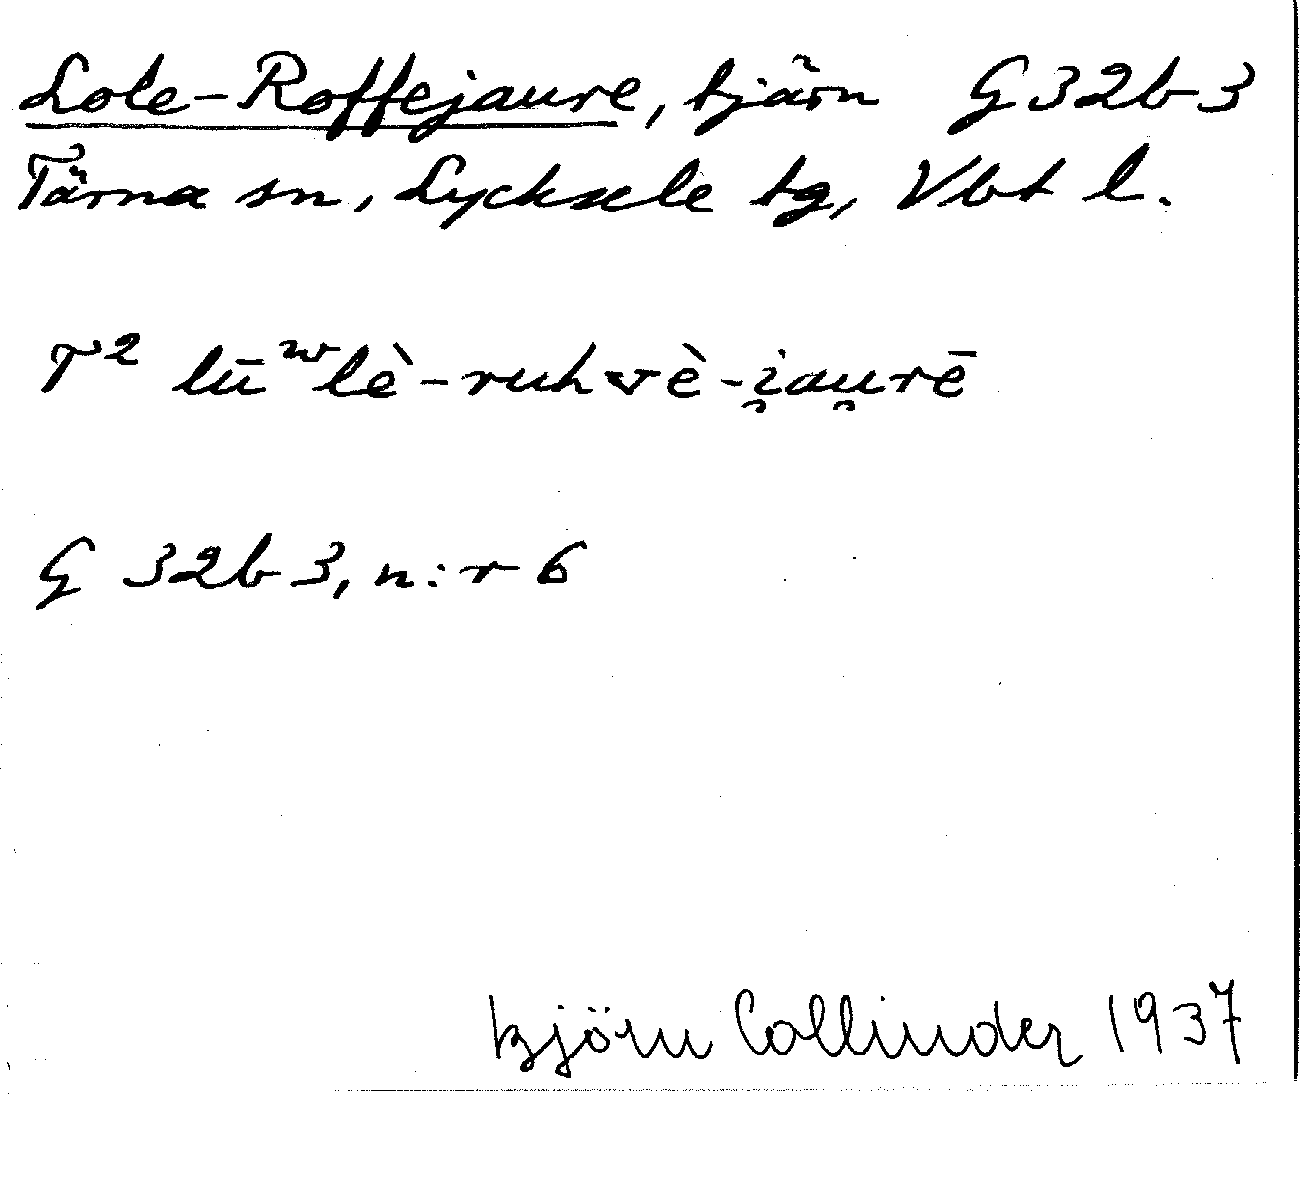 Lole-Roffejaure, tjärn G 32 b 3
Tärna sn, Lycksele tg, Vbt l.
T² lūʷlè-ruhvè-i̯au̯rē
G 32 b 3, n:r 6
Björn Collinder 1937